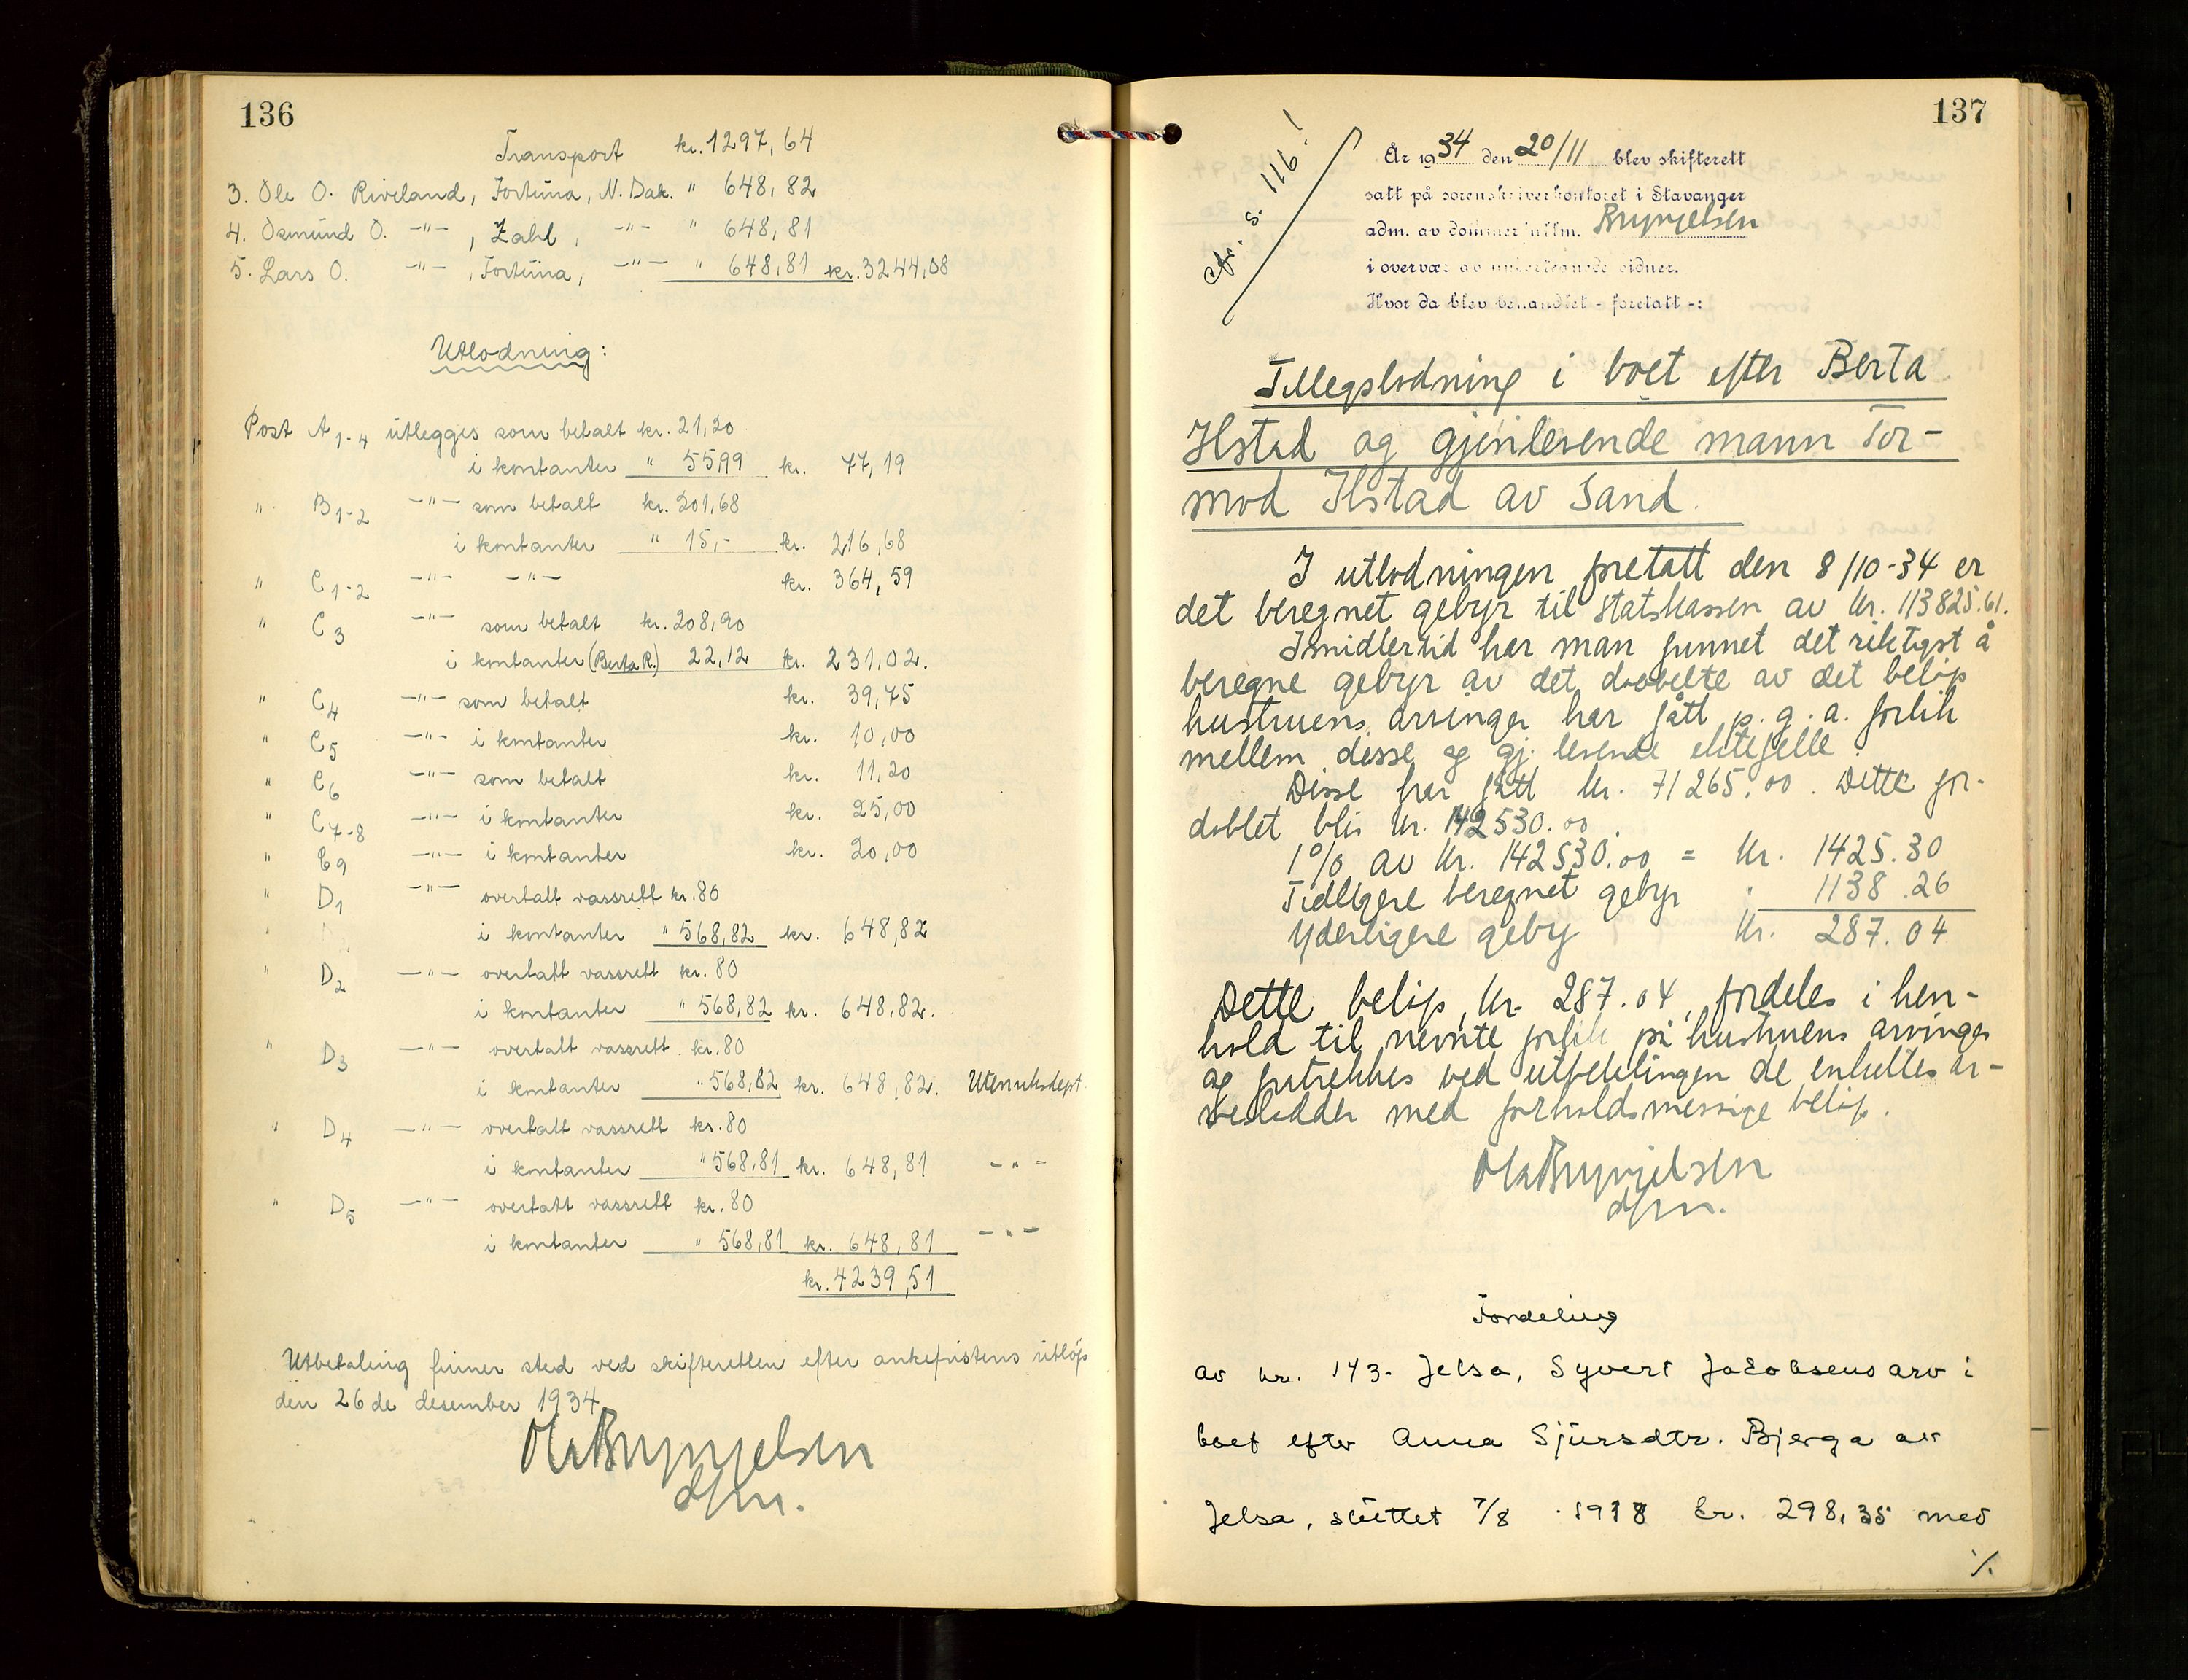 136
Transport kr. 1297,64
3. Ole O. Riveland, Fortuna, N. Dak. " 648,82
4. Osmund O. -"- , Zahl, -"- " 648,81
5. Lars O. -"- , Fortuna, -"- " 648,81 kr. 3244,08
Utlodning:
Post A 1-4 utlegges som betalt kr. 21,20
i kontanter " 55,99 kr. 77,19
" B 1-2 -"- som betalt kr. 201,68
i kontanter " 15,- kr. 216,68
" C 1-2 -"- -"- kr. 364,59
" C 3 -"- som betalt kr. 208,90
i kontanter (Berta R.) 22,12 kr. 231,02.
" C 4 -"- som betalt kr. 39,75
" C 5 -"- i kontanter kr. 10,00
" C 6 -"- som betalt kr. 11,20
" C 7-8 -"- i kontanter kr. 25,00
" C 9 -"- i kontanter kr. 20,00
" D 1 -"- overtatt vassrett kr. 80
i kontanter " 568,82 kr. 648,82
" D 2 -"- overtatt vassrett kr. 80
i kontanter " 568,82 kr. 648,82.
" D 3 -"- overtatt vassrett kr. 80
i kontanter " 568,82 kr. 648,82. Utenriksdept
" D 4 -"- overtatt vassrett kr. 80
i kontanter " 568,81 kr. 648,81 -"-
" D 5 -"- overtatt vassrett kr. 80
i kontanter " 568,81 kr. 648,81 -"-
kr. 4239,51
Utbetaling finner sted ved skifteretten efter ankefristens utløp
den 26de desember 1934
Ola Brynjelsen
dfm.
137
cfr. s. 116!
År 1934 den 20/11 blev skifterett
satt på sorenskriverkontoret i Stavanger
adm. av dommerfullm. Brynjelsen
i overvær av undertegnede vidner.
Hvor da blev behandlet - foretatt -:
Tillegslodning i boet efter Berta
Ilstad og gjenlevende mann Tor-
mod Ilstad av Sand.
I utlodningen foretatt den 8/10-34 er
det beregnet gebyr til statskassen av kr. 113825.61.
Imidlertid har man funnet det riktigst å
beregne gebyr av det dobbelte av det beløp
hustruens arvinger har fått p. g. a. forlik
mellem disse og gj. levende ektefelle.
Disse har fått kr. 71265.00. Dette for-
doblet blir kr. 142530.00.
1% av kr. 142530.00 = kr. 1425.30
Tidligere beregnet gebyr " 1138.26
Yderligere gebyr kr. 287.04
Dette beløp, kr. 287.04, fordeles i hen-
hold til nevnte forlik på hustruens arvinger
og fratrekkes ved utbetalingen de enkeltes ar-
velodder med forholdsmessige beløp.
Ola Brynjelsen
dfm.
Fordeling
av nr. 143. Jelsa, Syvert Jacobsens arv i
boet efter Anna Sjursdtr. Bjerga av
Jelsa, sluttet 7/8 1918 kr. 298,35 med
./.